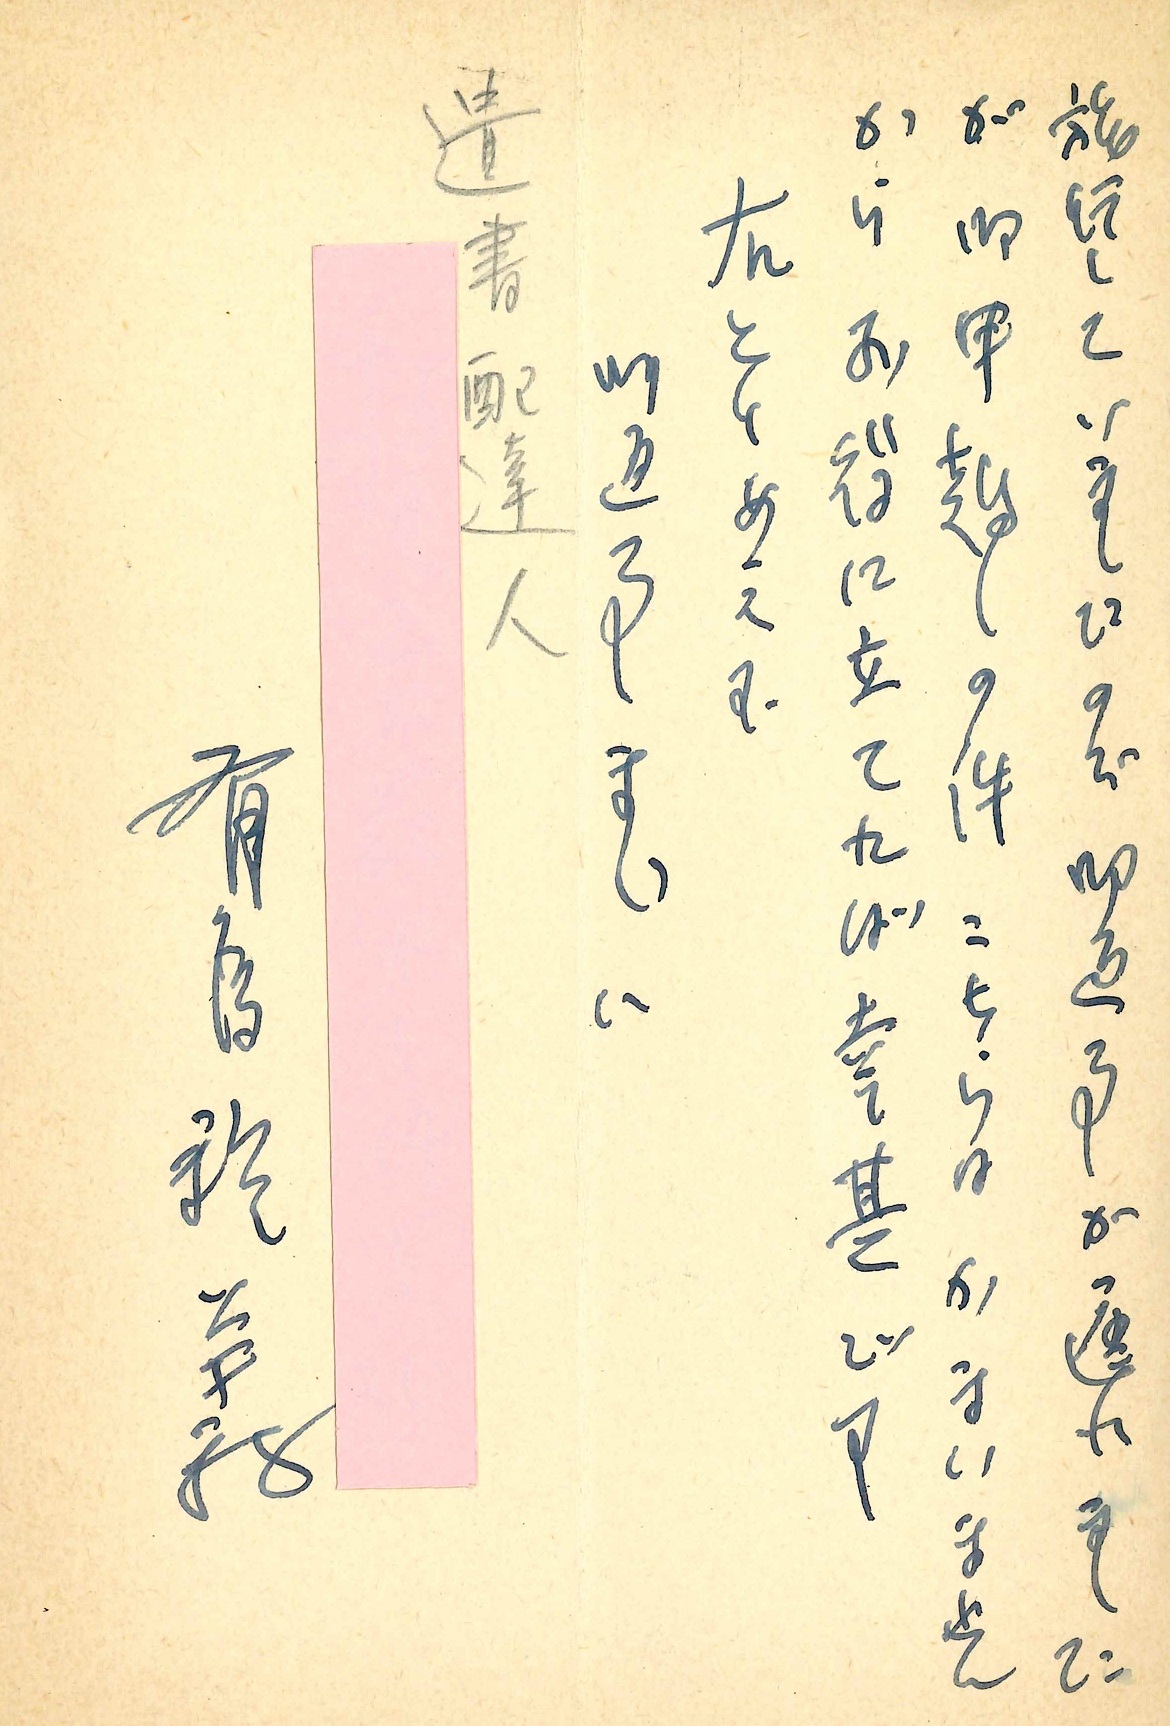 旅行していましたので 御返事が遅れました
が 御申越しの件 こちらは かまいません
から お役に立てれば 幸甚です
右とりあえず
御返事まで
遺書配達人
有馬頼義